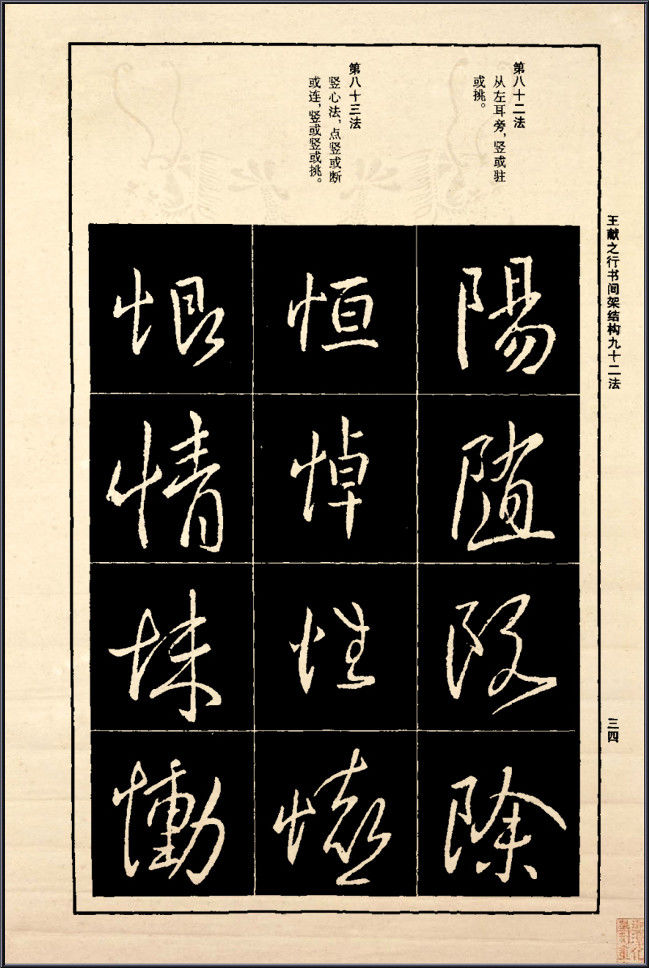 王献之行书间架结构九十二法
三四
第八十二法
从左耳旁，竖或驻
或挑。
第八十三法
竖心法，点竖或断
或连，竖或竖或挑。
陽
隨
除
恒
悼
性
恨
情
慟